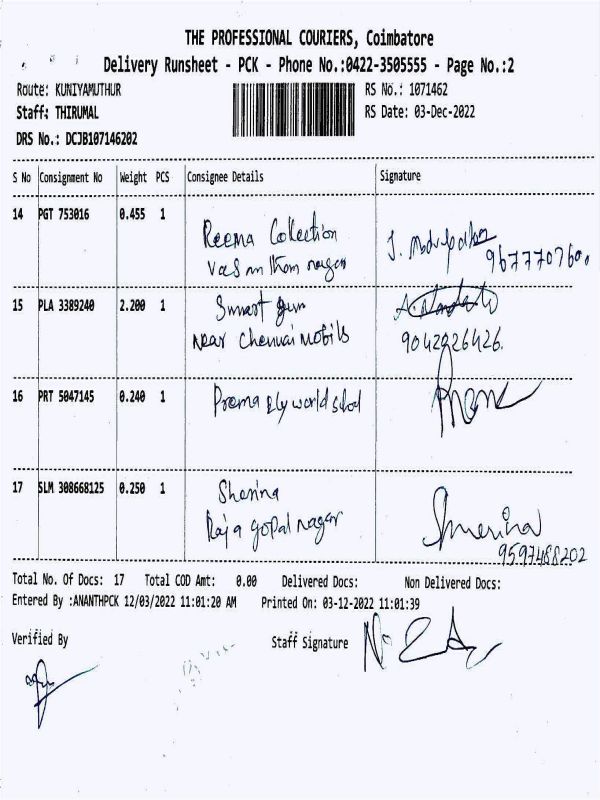 THE PROFESSIONAL COURIERS, Coimbatore
Delivery Runsheet - PCK - Phone No.:0422-3505555 - Page No.:2
Route: KUNIYAMUTHUR RS No.: 1071462
Staff: THIRUMAL RS Date: 03-Dec-2022
DRS No.: DCJB107146202
S No Consignment No Weight PCS Consignee Details Signature
14 PGT 753016 0.455 1 Reema Collection
nagar
15 PLA 3389240 2.200 1 Smart gum
Near Chennai mobils 9042926426
16 PRT 5047145 0.240 1 Prema world
17 SLM 308668125 0.250 1 Sherina Sherina
Raja gopal nagar 9597488202
Total No. Of Docs: 17 Total COD Amt: 0.00 Delivered Docs: Non Delivered Docs:
Entered By :ANANTHPCK 12/03/2022 11:01:20 AM Printed On: 03-12-2022 11:01:39
Verified By Staff Signature